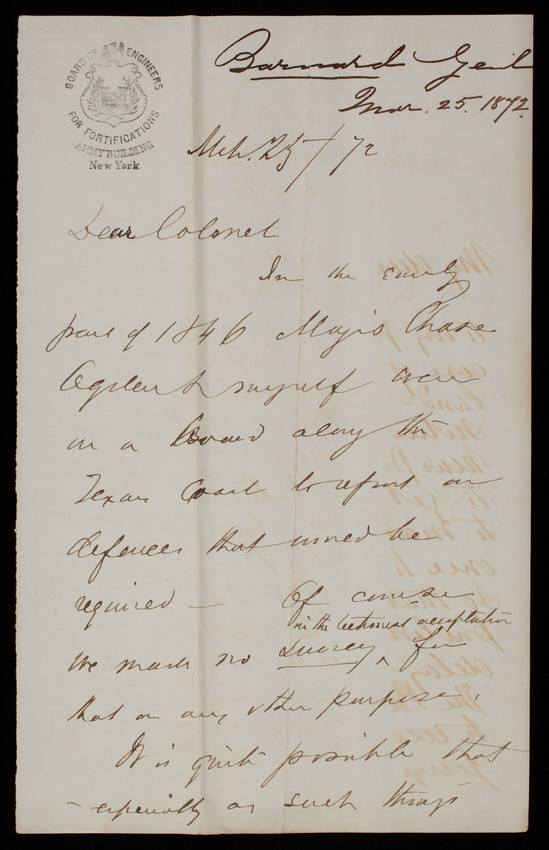 BOARD OF ENGINEERS
FOR FORTIFICATIONS
ARMY BUILDING
New York
Barnard Genl
Mar. 25. 1872.
Mch. 25/72
Dear Colonel
In the early
part of 1846 Majrs Chase
Ogden & myself were
on a Board along the
Texas Coast to report on
defences that would be
required — Of course
in the technical acceptation
we made no Survey ^ for
that or any other purpose.
It is quite possible that
– especially as such things